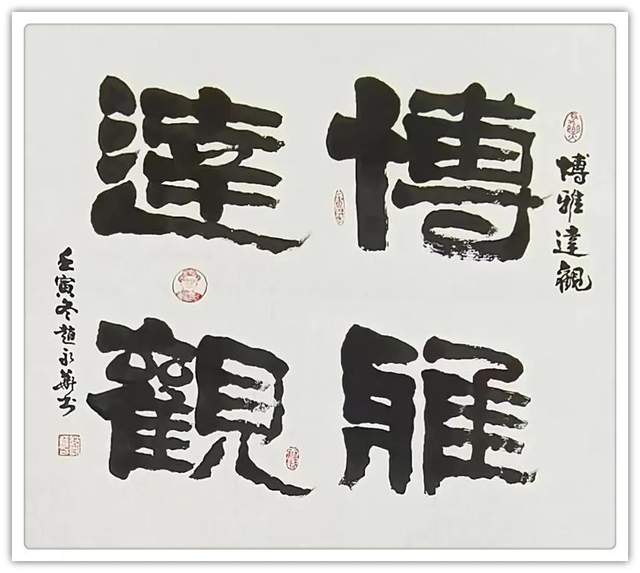 博雅達觀
博雅
達觀
壬寅冬趙永華书